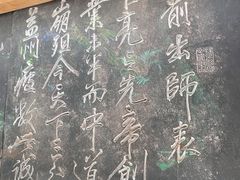 前出師表
亮言先帝創
業未半而中道
崩殂今天下三分
益州疲敝此誠